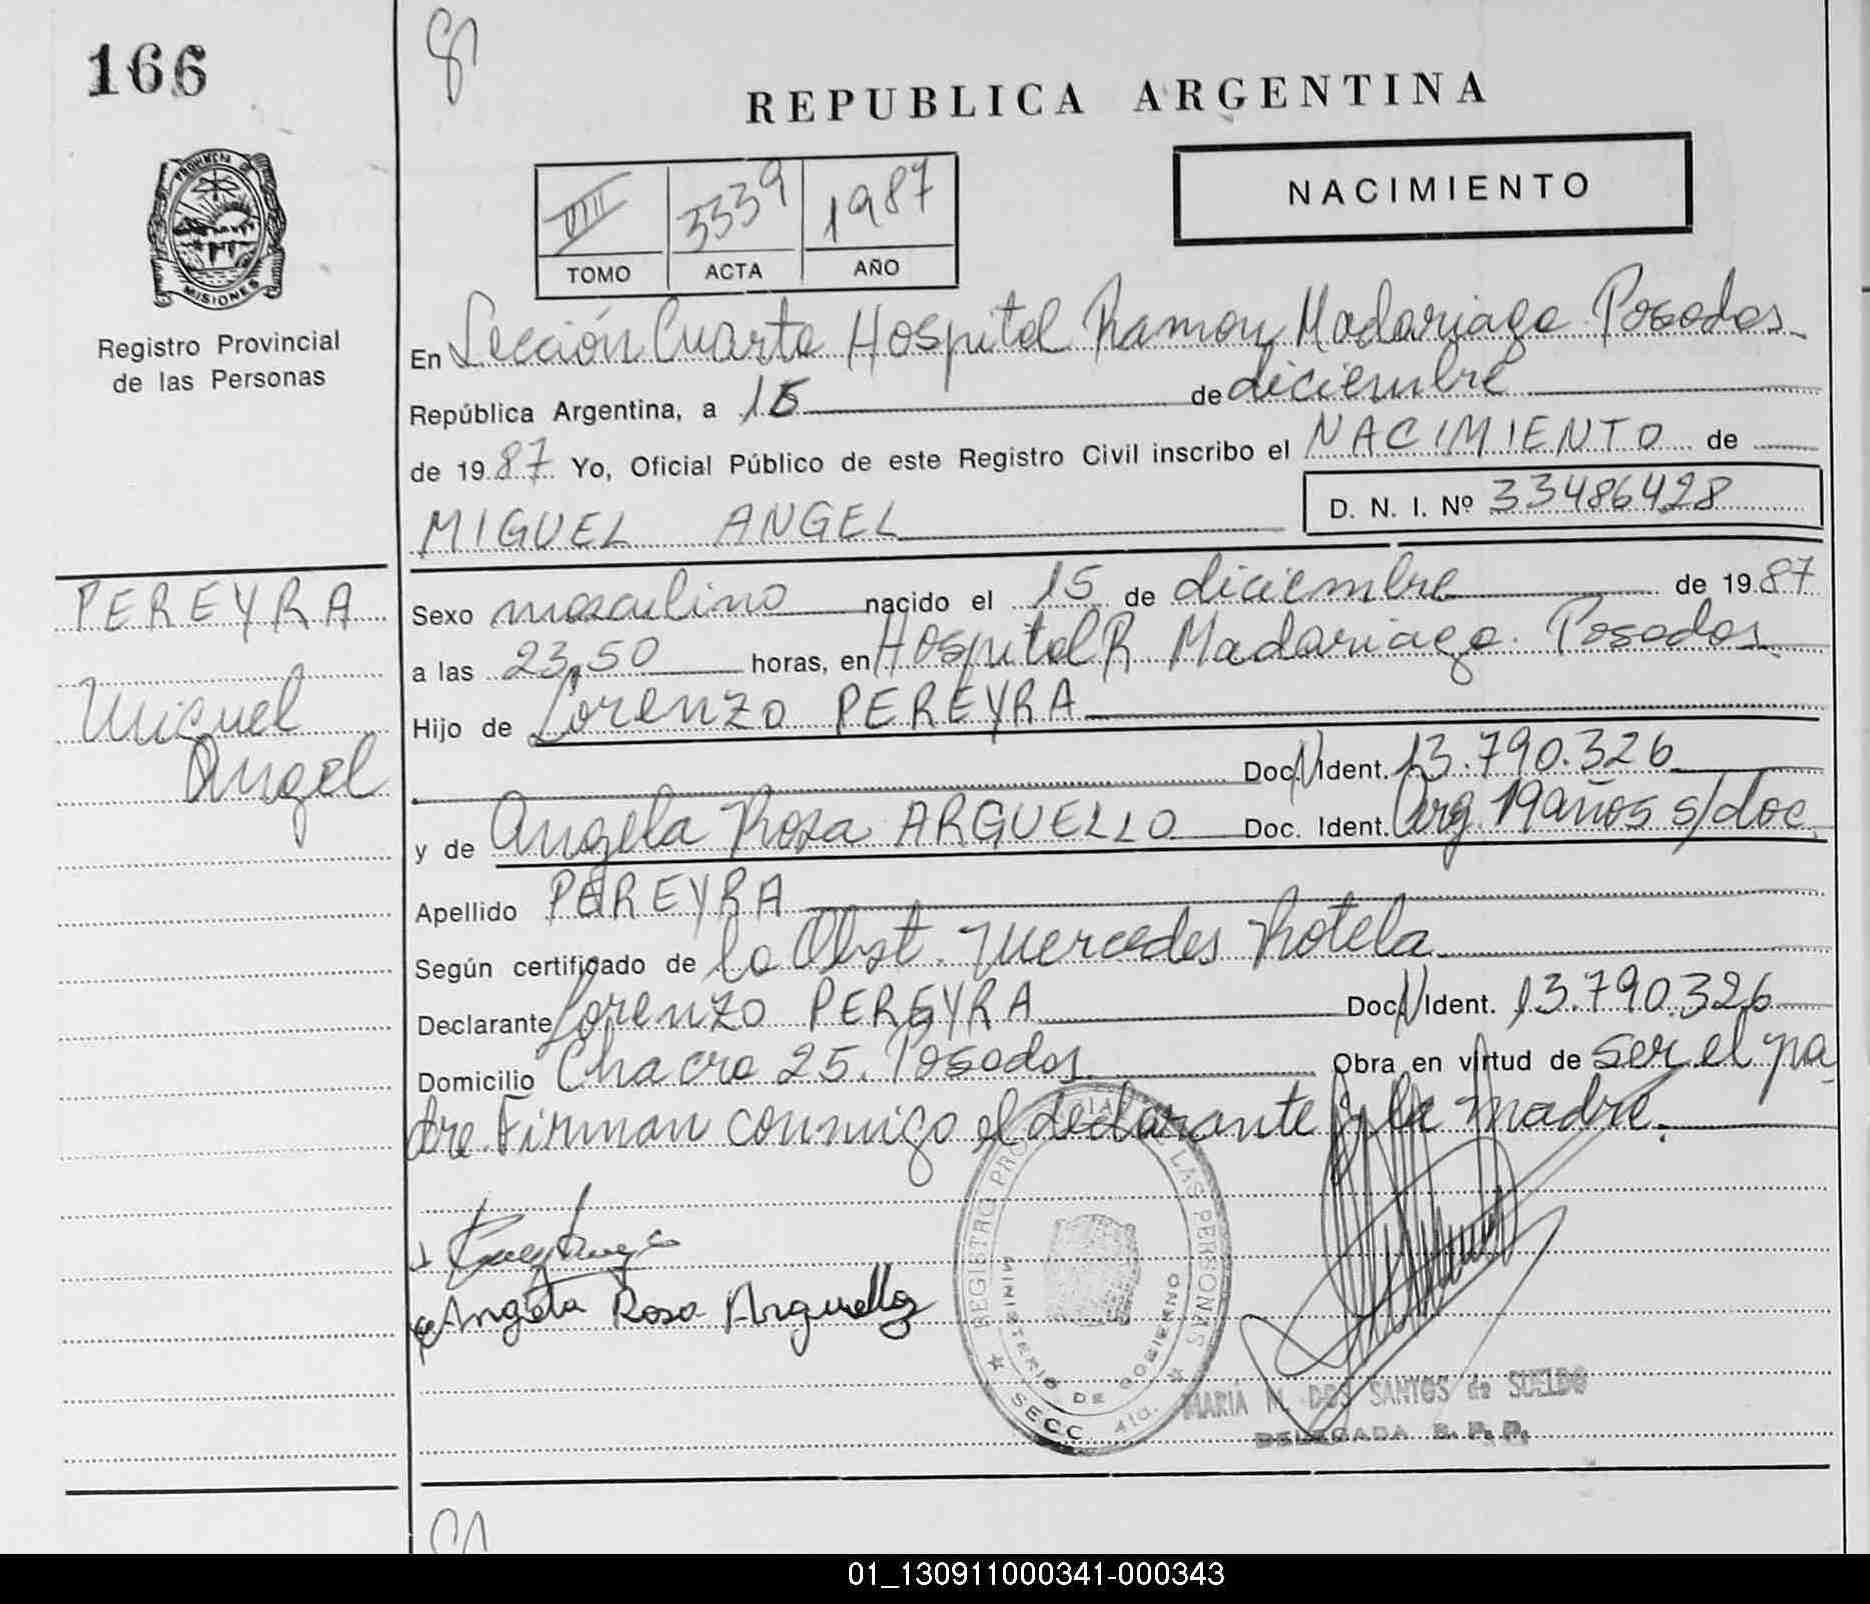 166
REPUBLICA ARGENTINA
NACIMIENTO
VIII 3339 1987
TOMO ACTA AÑO
PROVINCIA DE
MISIONES
Registro Provincial
de las Personas
En Sección Cuarta Hospital Ramon Madariaga Posadas
República Argentina, a de diciembre
de 1987 Yo, Oficial Público de este Registro Civil inscribo el NACIMIENTO de
MIGUEL ANGEL D. N. I. Nº 33486428
PEREYRA
Miguel
Angel
Sexo masculino nacido el 15 de diciembre de 1987
a las 23,50 horas, en Hospital R. Madariaga. Posadas
Hijo de Lorenzo PEREYRA
Doc. N Ident. 13.790.326
y de Angela Rosa ARGUELLO Doc. Ident. Arg. 19 años s/doc.
Apellido PEREYRA
Según certificado de la Obst. Mercedes Rotela
Declarante Lorenzo PEREYRA Doc. N Ident. 13.790.326
Domicilio Chacra 25. Posadas Obra en virtud de ser el pa
dre. Firman conmigo el declarante y la madre.
Angela Rosa Arguello
REGISTRO PROVINCIAL DE LAS PERSONAS
MINISTERIO DE GOBIERNO
SECC. 4ta.
MARIA M. DOS SANTOS de SUELDO
DELEGADA R. P. P.
01_130911000341-000343